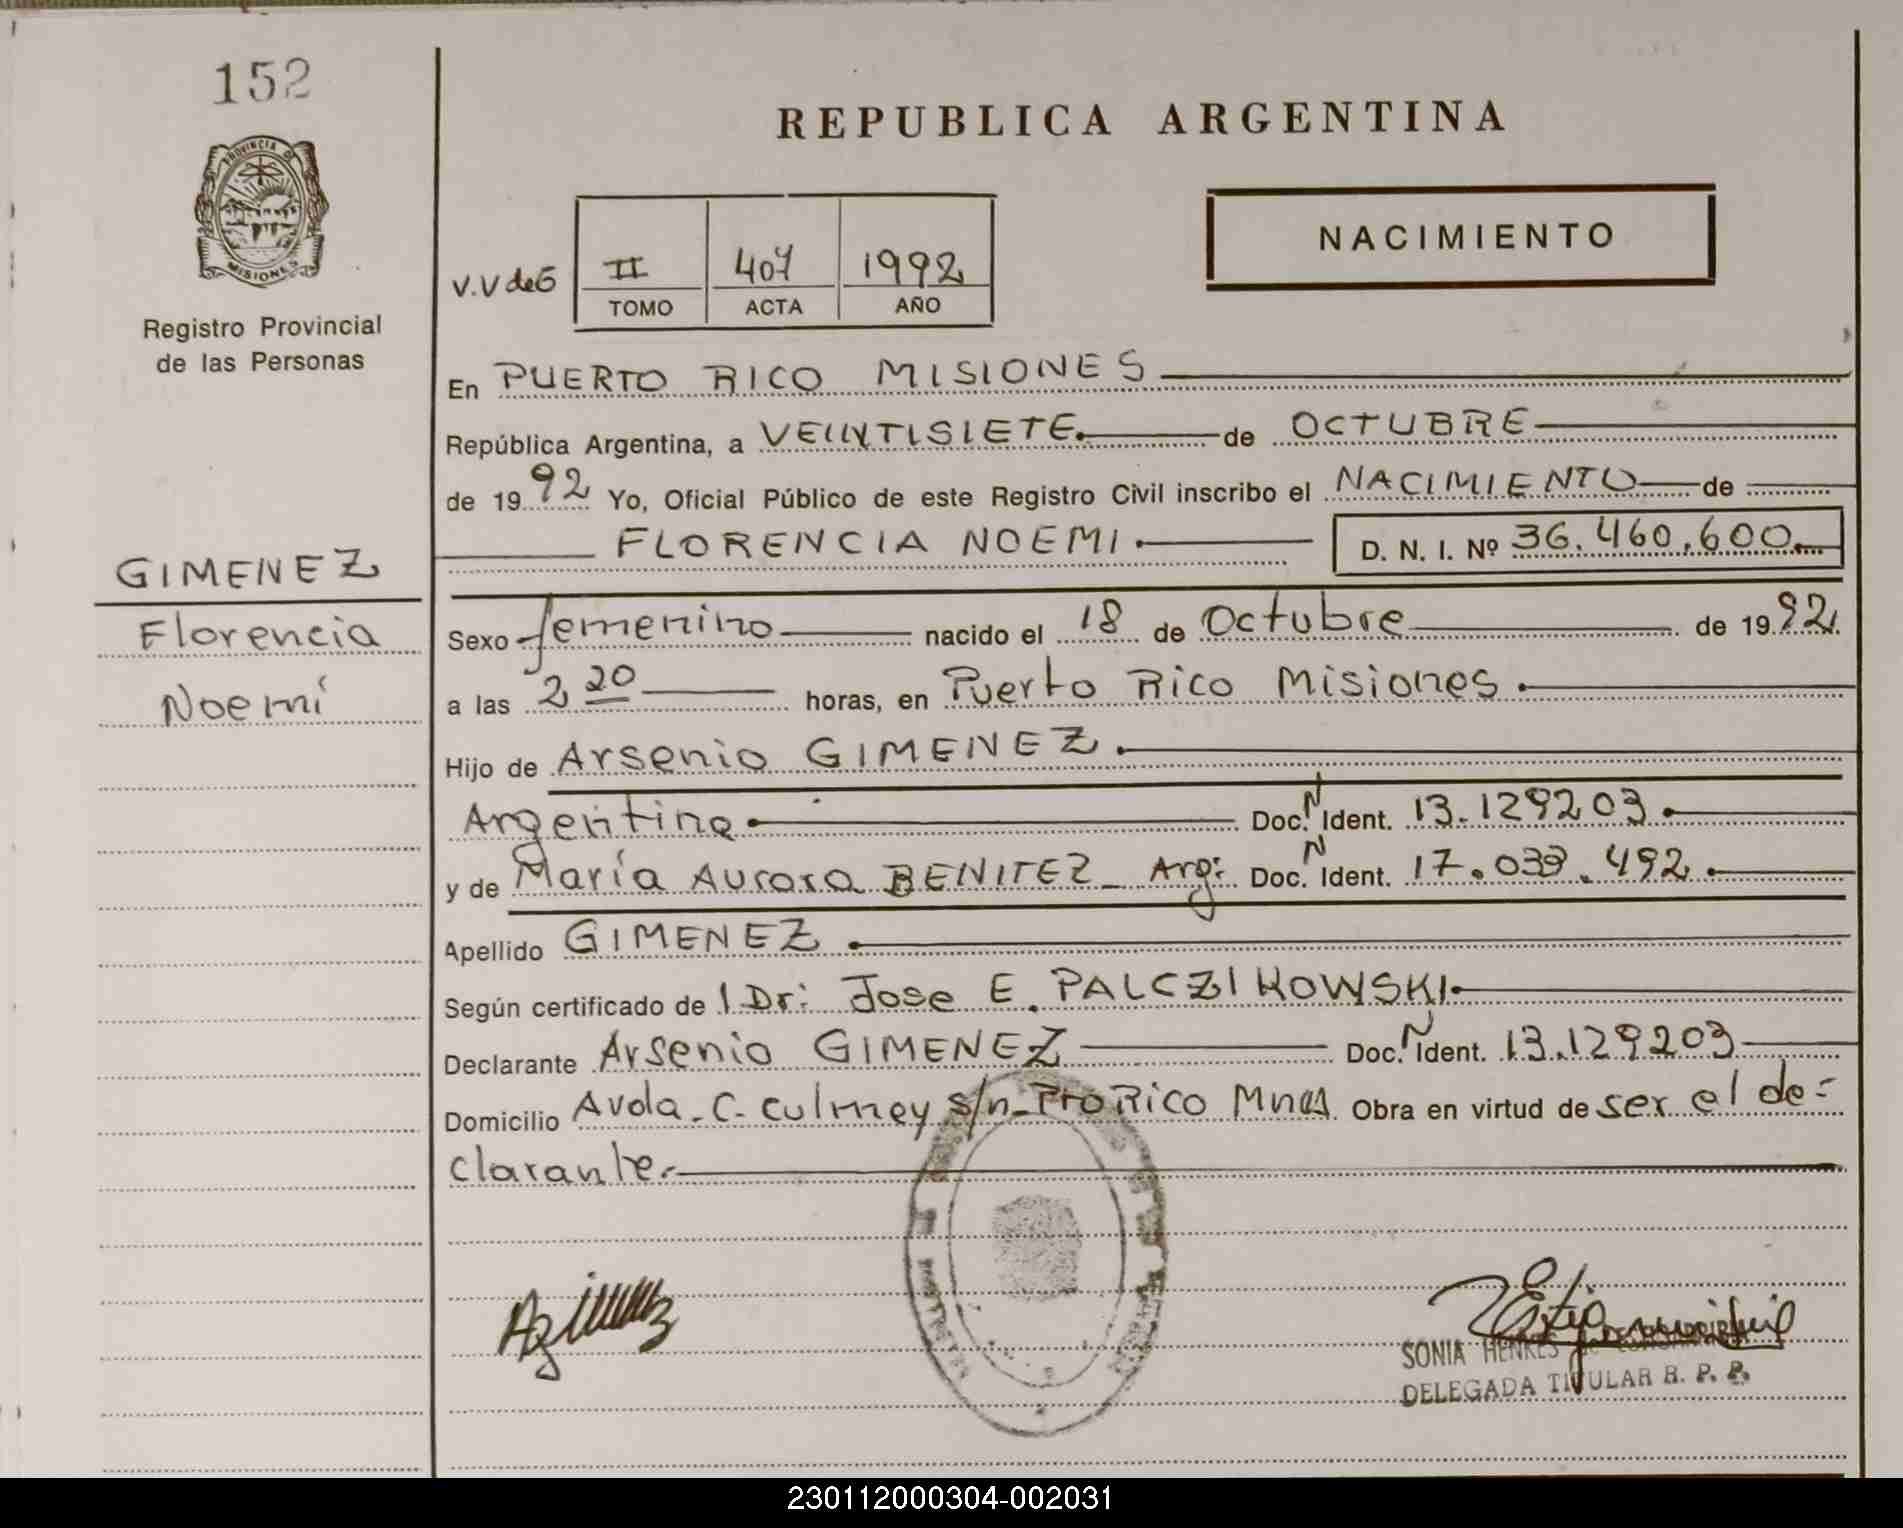 152
REPUBLICA ARGENTINA
PROVINCIA DE
MISIONES
Registro Provincial
de las Personas
NACIMIENTO
V.V de G
II 407 1992
TOMO ACTA AÑO
En PUERTO RICO MISIONES
República Argentina, a VEINTISIETE de OCTUBRE
de 1992 Yo, Oficial Público de este Registro Civil inscribo el NACIMIENTO de
FLORENCIA NOEMI D. N. I. Nº 36.460.600
GIMENEZ
Florencia
Noemí
Sexo femenino nacido el 18 de Octubre de 1992
a las 2 20 horas, en Puerto Rico Misiones
Hijo de Arsenio GIMENEZ
Argentino Doc. N Ident. 13.129203
y de María Aurora BENITEZ Arg: Doc. N Ident. 17.039.492
Apellido GIMENEZ
Según certificado de l Dr: Jose E. PALCZIKOWSKI
Declarante Arsenio GIMENEZ Doc. N Ident. 13.129203
Domicilio Avda. C. Culmey s/n Pto Rico Mnes Obra en virtud de ser el de-
clarante.
SONIA HENKES
DELEGADA TITULAR R. P. P.
230112000304-002031